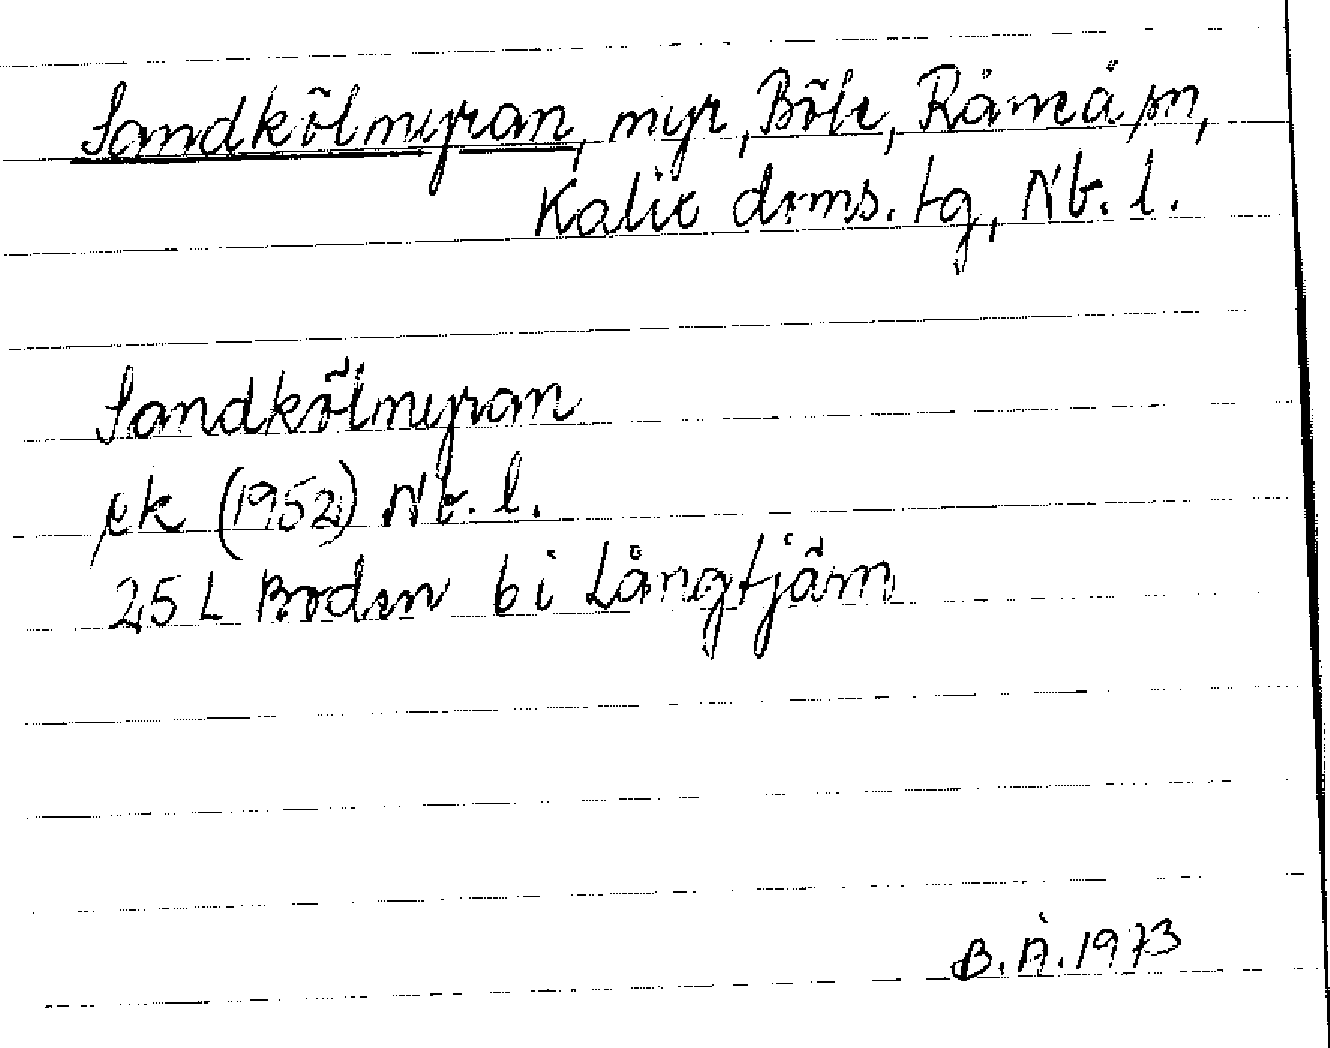 Sandkölmyran, myr, Böle, Råneå sn,
Kalix doms. tg, Nb. l.
Sandkölmyran
ek (1952) Nb. l.
25 L Boden bi Långtjärn
B.Å. 1973